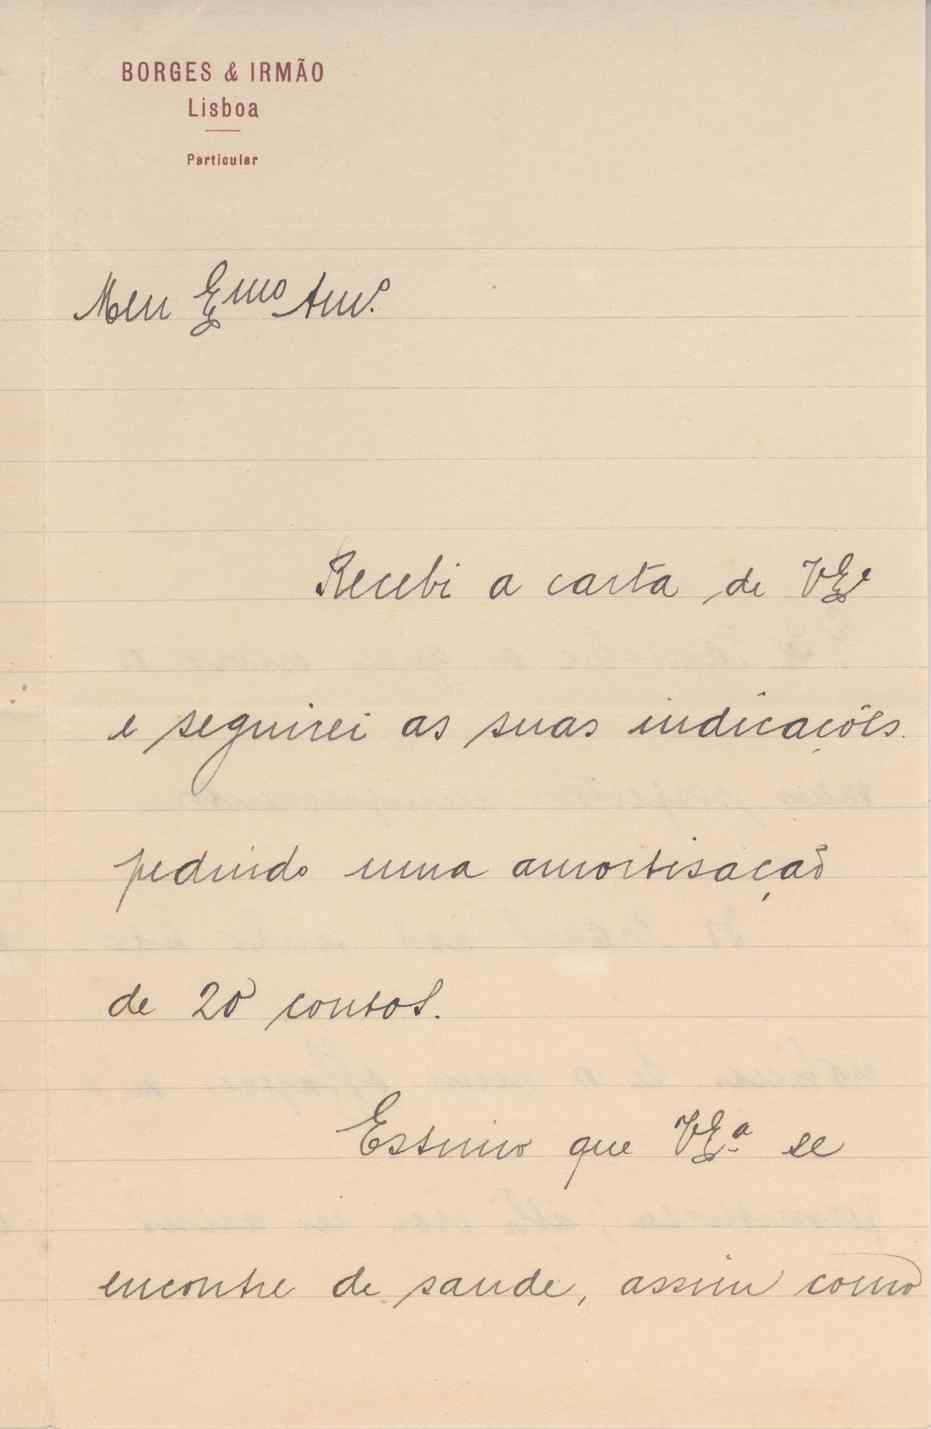 BORGES & IRMÃO
Lisboa
Particular
Meu Exmo Amo.
Recebi a carta de VExa
e seguirei as suas indicações.
pedindo uma amortisação
de 20 contos.
Estimo que VExa se
encontre de saude, assim como